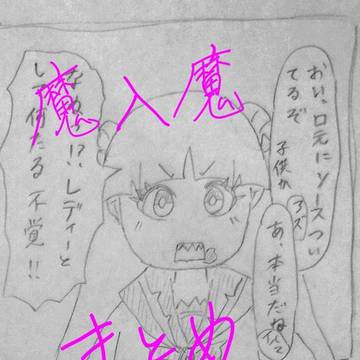 魔入魔
まとめ
おい、口元にソースつい
てるぞ
子供か
アズ
あ、本当だね
レディーと
何たる不覚!!